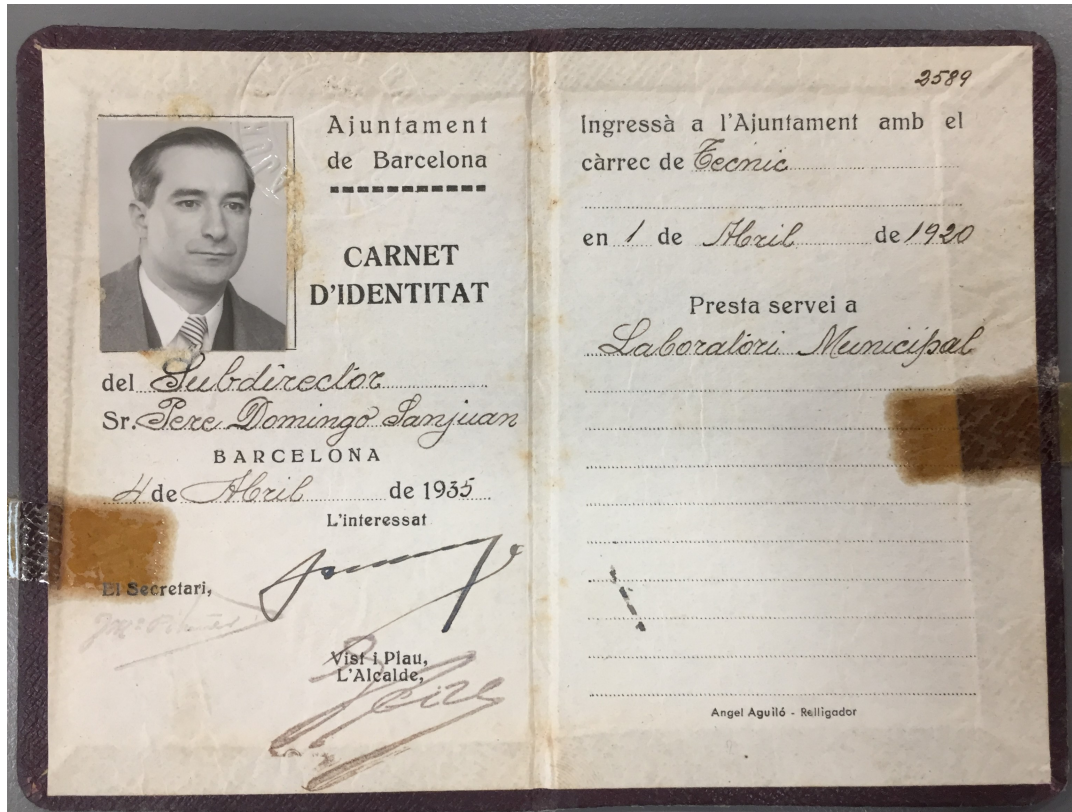 Ajuntament
de Barcelona
CARNET
D'IDENTITAT
del Subdirector
Sr. Pere Domingo Sanjuan
BARCELONA
4 de Abril de 1935
L'interessat
El Secretari,
Vist i Plau,
L'Alcalde,
2589
Ingressà a l'Ajuntament amb el
càrrec de Tecnic
en 1 de Abril de 1920
Presta servei a
Laboratòri Municipal
Angel Aguiló - Relligador